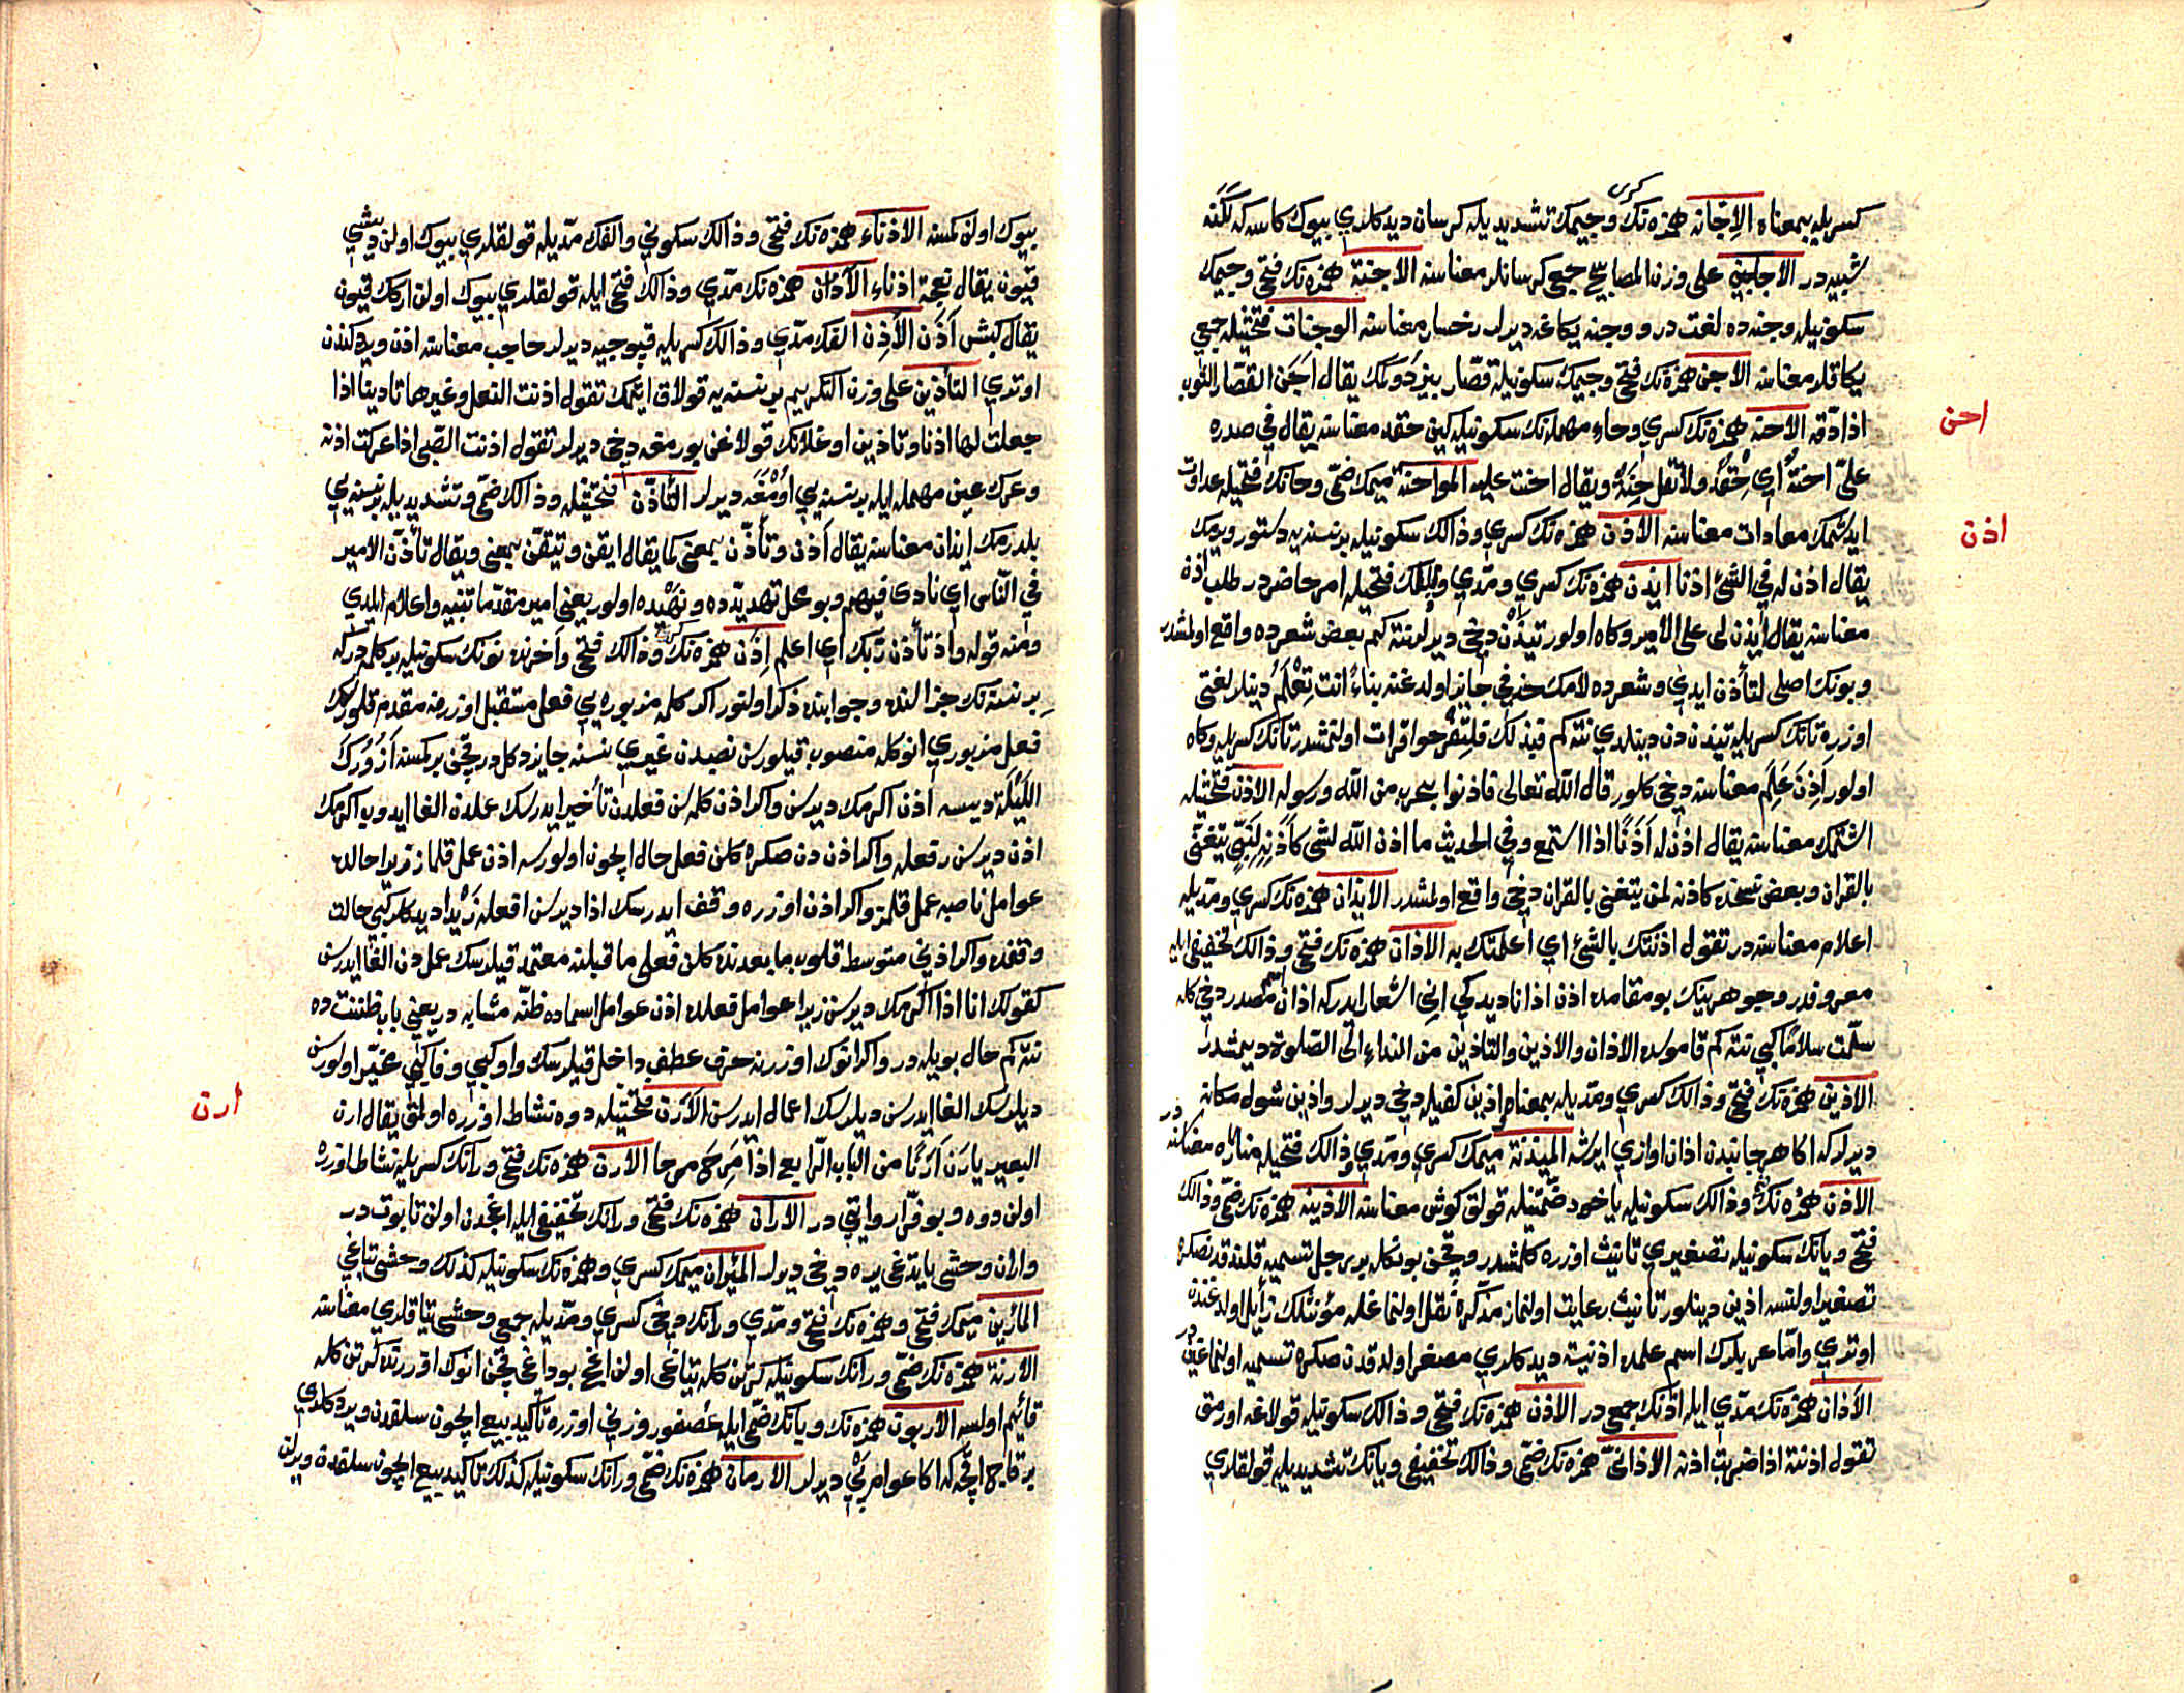 كسريله بمعناه الاِجّانه همزه نك كسرى وجيمك تشديديله كرسان ديدكلري بيوك كاسه كه لَكَنه
شبيه در الاجاجين على وزن المصابيح جمع كرسانلر معناسنه الاجنة همزه نك فتحى وجيمك
سكونيله وجنه ده لغت در ووجنه يكاغه ديرلر رخسار معناسنه الوجنات فتحتيله جمعى
يكاقلر معناسنه الاجن همزه نك فتحى وجيمك سكونيله قصّار بيز دوكمك يقال اَجَن القصّار الثوب
احن
اذا دقّه الاحنه همزه نك كسري وحاء مهمله نك سكونيله كين حقد معناسنه يقال في صدره
علىّ احنةٌ اي حقدٌ ولا تقل حِنَةٌ ويقال احنت عليه المواحنة ميمك ضمّى وحانك فتحيله عداوت
اذن
ايدشمك معادات معناسنه الاذن همزه نك كسري وذالك سكونيله بر نسنه يه دستور ويرمك
يقال اذن له في الشئ اذنا ايذن همزه نك كسري ومدّي وذالك فتحيله امر حاضر در طلب اذن
معناسنه يقال ايذن لى على الامير وكاه اولور تيذَن دخى ديرلر نته كم بعض شعرده واقع اولمشدر
وبونك اصلى لتأذن ايدي وشعرده لامك حذفي جايز اولدغنه بناءً انت تِعْلَمُ دينلر لغتى
اوزره تانك كسريله تيذن دن دينلدي نته كم فبذلك فلتفرحوا قرائت اولنمشدر تانك كسريله وكاه
اولور اَذِنَ عَلِمَ معناسنه دخى كلور قال الله تعالى فاذنوا بحرب من الله ورسوله الاذن فتحتيله
اشتمك معناسنه يقال اذن له اَذَنًا اذا استمع وفي الحديث ما اذن الله لشى كاَذَنِهِ لِنَبِىٍّ يتغنّى
بالقران وبعض نسخه ده كاذنه لمن يتغنى بالقران دخى واقع اولمشدر الايذان همزه نك كسري ومدّيله
اعلام معناسنه در تقول اذنتك بالشئ اي اعلمتك به الاذان همزه نك فتحى وذالك تخفيفى ايله
معروفدر وجوهرينك بو مقامده اذن اذانا ديدكي انى اشعار ايدر كه اذان مصدر دخى كله
سلّمت سلامًا كبي نته كم قاموسده الاذان والاذين والتاذين من النداء الى الصّلوة ديمشدر
الاذين همزه نك فتحى وذالك كسري ومدّيله بمعناه اذين كفيله دخى ديرلر واذين شوله مكانه
ديرلر كه اكا هر جانبدن اذان اوازي ايرشه الميذنة ميمك كسري ومدّي وذالك فتحيله مناره معناسنه در
الاذن همزه نك ضمى وذالك سكونيله ياخود ضمّتيله قولق كوش معناسنه الاذينه همزه نك ضمّى وذالك
فتحى ويانك سكونيله تصغيري تانيث اوزره كلمشدر وقچن بونكله بر رجل تسميه قلندقدنصكره
تصغير اولنسه اذين دينلور تانيث رعايت اولنماز مذكّره نقل اولنماغله مؤنثلك زأيل اولدغندن
اوتري وامّا عربلرك اسم علمده اذنيه ديدكلري مصغرا اولدقدن صكره تسميه اولنماغيندر
الاَذان همزه نك مدّي ايله اذنك جمعى در الاذن همزه نك فتحى وذالك سكونيله قولاغه اورمق
تقول اذنته اذا ضربت اذنه الاذانىّ همزه نك ضمّى وذالك تخفيفى ويانك تشديديله قولقلري
بيوك اولن كمسنه الاذناء همزه نك فتحى وذالك سكوني والفك مدّيله قولقلري بيوك اولن ديشى
قيون يقال نعجة اذناء الاَذان همزه نك مدّي وذالك فتحى ايله قولقلري بيوك اولن اركك قيون
يقال كبش اَذَن الاَذِن الفك مدّي وذالك كسريله قپوجيه ديرلر حاجب معناسنه اذن ويردكندن
اوتري التأذين على وزن التكريم بر نسنه يه قولاق ايتمك تقول اذنت النعل وغيرها تاذينا اذا
جعلت لها اذنا وتاذين اوغلانك قولاغن بورمغه دخى ديرلر تقول اذنت الصّبى اذا عركت اذنه
وعرك عين مهمله ايله بر نسنه يي اوُمغه ديرلر التأذّن فتحتيله وذالك ضمّى وتشديديله بر نسنه يي
بلدرمك ايذان معناسنه يقال اَذن وتأذّن بمعنى كما يقال ايقن وتيقّن بمعنى ويقال تأذّن الامير
في النّاس اي نادى فيهم وبو محل تهديدّه ده ونهْيده اولور يعنى امير مقدّما تنبيه واعلام ايلدي
ومنه قوله واذ تأذن ربّك اي اعلم اِذَن همزه نك كسرى وذالك فتحى واَخرنده نونك سكونيله بر كلمه در كه
بر نسنه نك جزالنده وجوابنده ذكر اولنور اكر كلمه مزبوره يي فعل مستقبل اوزرينه مقدم قلورسك
فعل مزبوري انوكله منصوب قيلورسن نصبدن غيري نسنه جايز دكلدر قچن بر كمسنه اَزُورُكَ
اللَيْلَة ديسه اذن اكرمك ديرسن واكر اذن كلمه سن فعلدن تأخير ايدرسك عملدن الغا ايدوب اكرمك
اذن ديرسن رفعله واكر اذن دن صكره كلن فعل حال ايچون اولورسه اذن عمل قلماز زيرا حالده
عوامل ناصبه عمل قلمز واكر اذن اوزره وقف ايدرسك اذا ديرسن اقعله زَيْدا ديدكلري كبي حالت
وقفده واكر اذني متوسط قلوب ما بعدنده كلن فعلى ما قبلنه معتمد قيلرسك عملدن الغا ايدرسن
كقولك انا اذا اكرمك ديرسن زيرا عوامل فعلده اذن عوامل اسماده ظنّه مشابه در يعنى باب ظننت ده
نته كم حال بويله در واكر انوك اوزرينه حرف عطف داخل قيلرسك واو كبي وفا كبي مخيّر اولورسن
ارن
ديلرسك الغا ايدرسن ديلرسك اعمال ايدرسن الاَرَن فتحتيله دوه نشاط اوزره اولمق يقال ارن
البعير يارَن اَرَنًا من الباب الرّابع اذا مَرِح مرحا الارن همزه نك فتحى ورانك كسريله نشاط اوزره
اولن دوه وبو فرّا روايتى در الاران همزه نك فتحى ورانك تخفيفى ايله اغجدن اولن تابوت در
واران وحشى يايدغى يره دخى ديرلر المئران ميمك كسري وهمزه نك سكونيله كذلك وحشى يتاغى
المأرين ميمك فتحى وهمزه نك فتحى ومدّي ورانك دخى كسري ومدّيله جمعى وحشى يتاقلري معناسنه
الارنة همزه نك ضمّى ورانك سكونيله
قائيم اولسه الاربون همزه نك ويانك ضمّى ايله عُصفور وزني اوزره تأكيد بيع ايچون سلفدن ويردكلري
بر قاچ اقچه كه اكا عوام پَىْ ديرلر الاربان همزه نك ضمّى ورانك سكونيله كذلك تأكيد بيع ايچون سلفده ويرلن